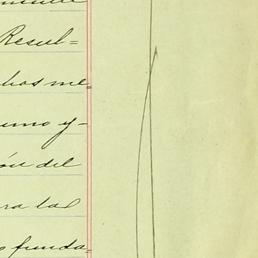 Resul=
hos me
umo y-
ón del
ra la
s funda-